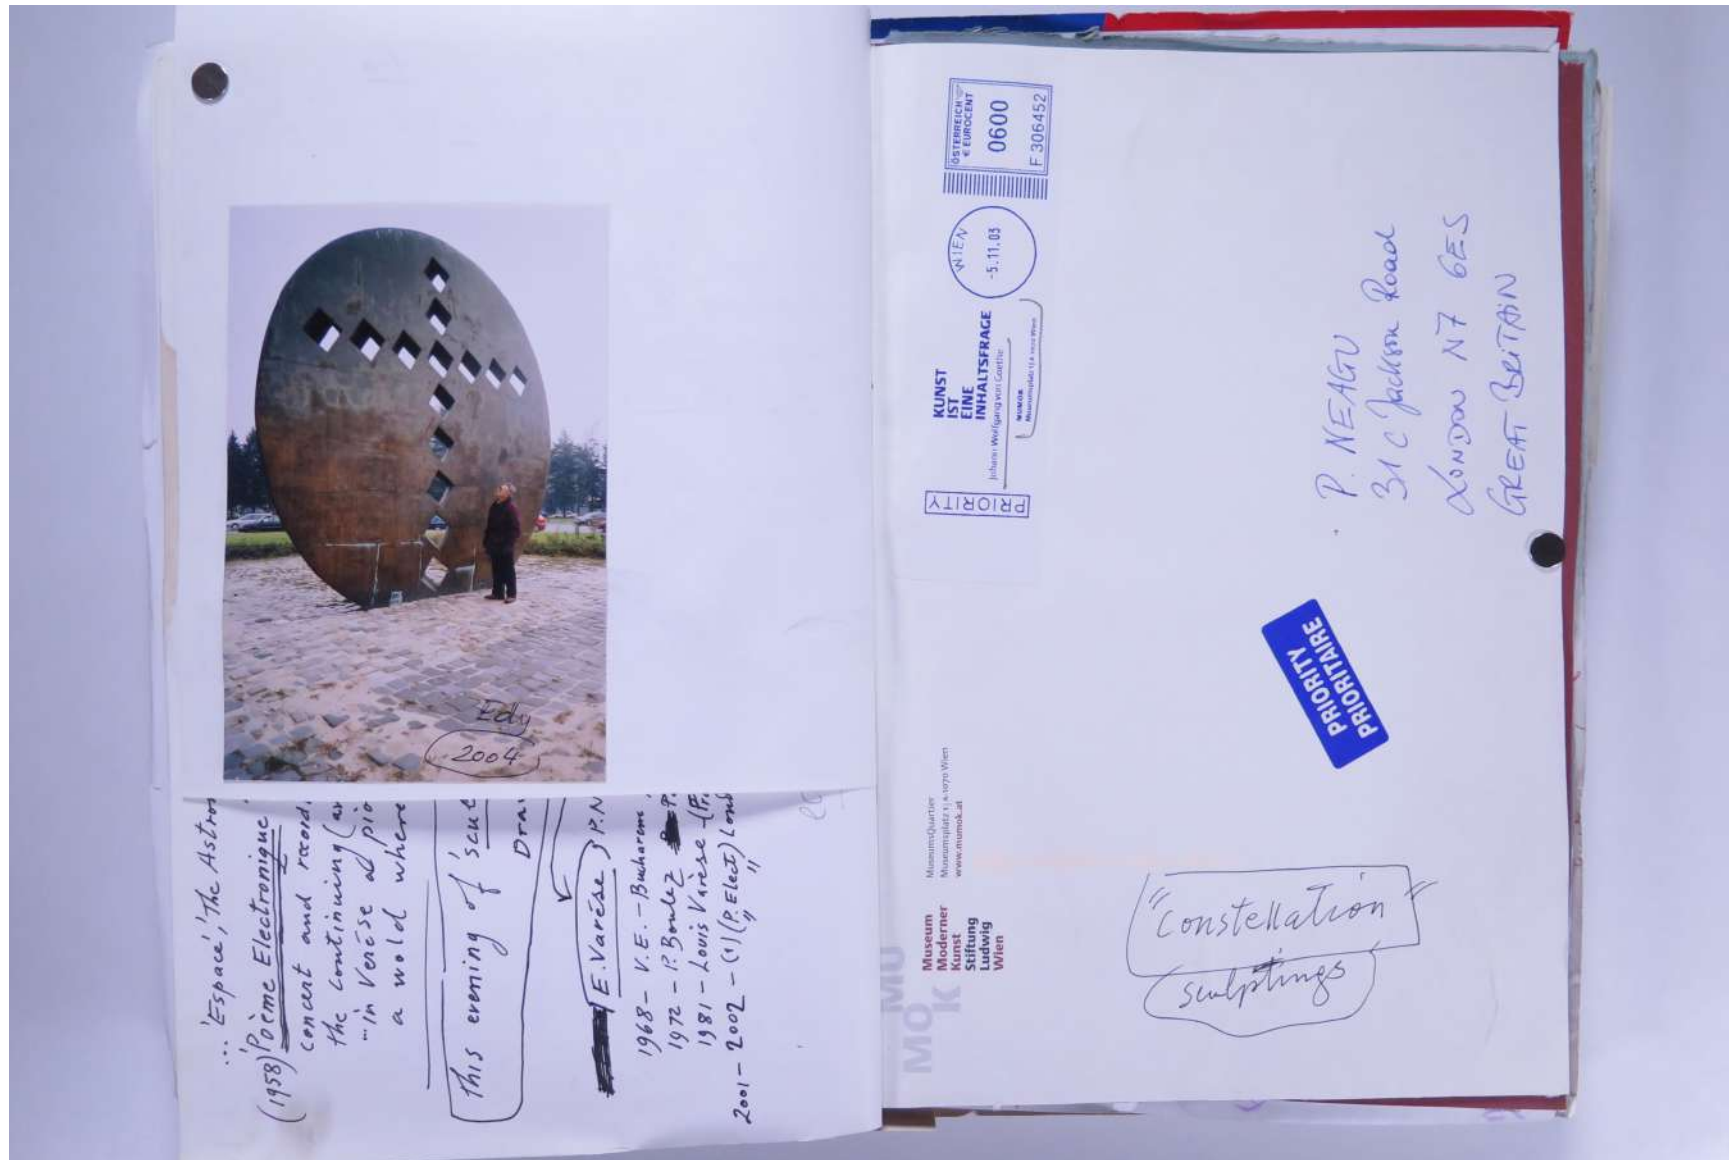 Edy
2004
... 'Espace', 'The Astron
(1958) 'Poème Electronique'
concert and record
the continuing (an
"in Verése ad pio
a wold where
This evening of 'scul
Dra
E. Varése P.N
1968 - V.E. - Bucharest
1972 - P. Boulez P.
1981 - Louis Varèse (Fr
2001 - 2002 - (1) (P. Elect) Lond
" "
ÖSTERREICH
€ EUROCENT
0600
F 306452
WIEN
-5.11.03
KUNST
IST
EINE
INHALTSFRAGE
Johann Wolfgang von Goethe
MUMOK
Museumsplatz 1 | A-1070 Wien
PRIORITY
P. NEAGU
31 C Jackson Road
LONDON N7 6ES
GREAT BRITAIN
PRIORITY
PRIORITAIRE
MuseumsQuartier
Museumsplatz 1 | A-1070 Wien
www.mumok.at
Museum
Moderner
Kunst
Stiftung
Ludwig
Wien
MU
MO
K
"Constellation"
sculptings